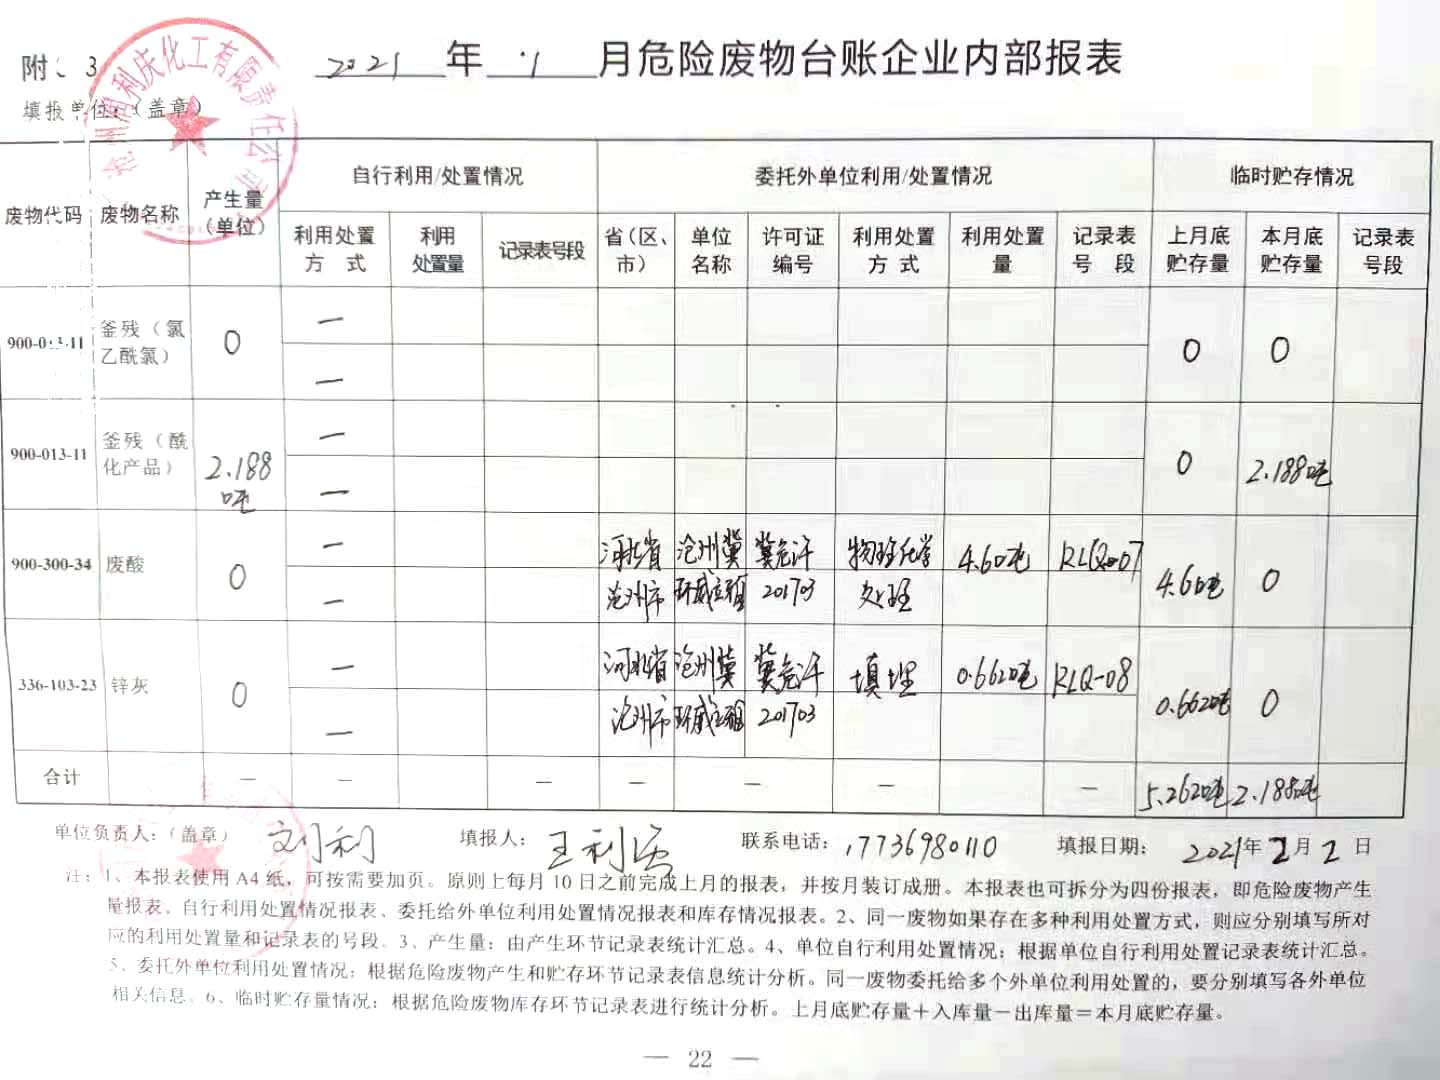 附 3
2021 年 1 月危险废物台账企业内部报表
填报单位：（盖章）
利庆化工有限责任公司
废物代码 废物名称 产生量（单位） 自行利用/处置情况 委托外单位利用/处置情况 临时贮存情况
利用处置方式 利用处置量 记录表号段 省（区、市） 单位名称 许可证编号 利用处置方式 利用处置量 记录表号段 上月底贮存量 本月底贮存量 记录表号段
900-013-11 釜残（氯乙酰氯） 0 — — 0 0
900-013-11 釜残（酰化产品） 2.188吨 — — 0 2.188吨
900-300-34 废酸 0 — — 河北省沧州市 沧州冀环威立雅 冀危许201703 物理化学处理 4.60吨 RLQ-07 4.60吨 0
336-103-23 锌灰 0 — — 河北省沧州市 沧州冀环威立雅 冀危许201703 填埋 0.662吨 RLQ-08 0.662吨 0
合计 — — — — — — — 5.262吨 2.188吨
单位负责人：（盖章） 刘利 填报人： 王利 联系电话：17736980110 填报日期： 2021年2月2日
注：1、本报表使用 A4 纸，可按需要加页。原则上每月 10 日之前完成上月的报表，并按月装订成册。本报表也可拆分为四份报表，即危险废物产生
量报表、自行利用处置情况报表、委托给外单位利用处置情况报表和库存情况报表。2、同一废物如果存在多种利用处置方式，则应分别填写所对
应的利用处置量和记录表的号段。3、产生量：由产生环节记录表统计汇总。4、单位自行利用处置情况：根据单位自行利用处置记录表统计汇总。
5、委托外单位利用处置情况：根据危险废物产生和贮存环节记录表信息统计分析。同一废物委托给多个外单位利用处置的，要分别填写各外单位
相关信息。6、临时贮存量情况：根据危险废物库存环节记录表进行统计分析。上月底贮存量＋入库量－出库量＝本月底贮存量。
— 22 —